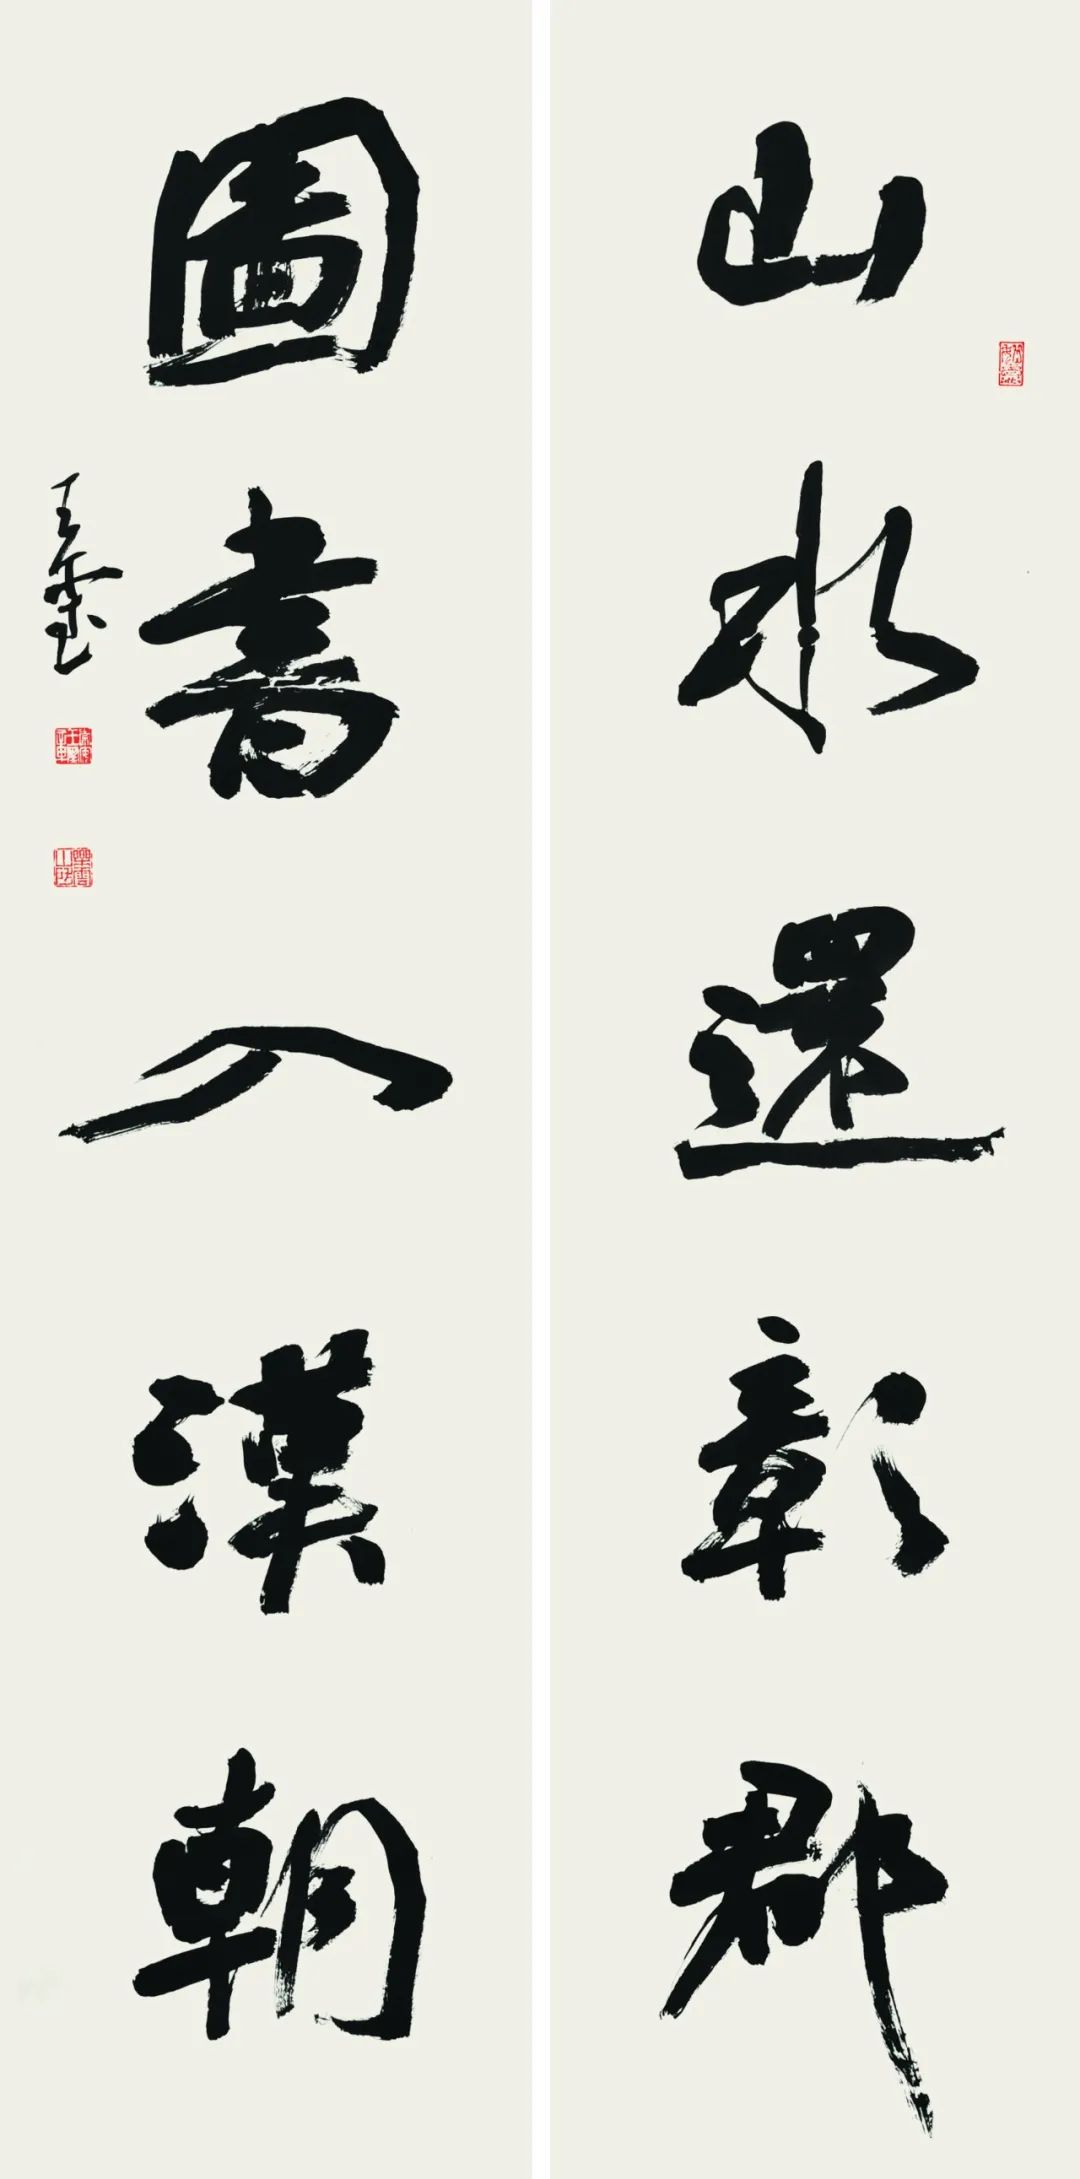 山水還彰郡
圖書入漢朝
王墨